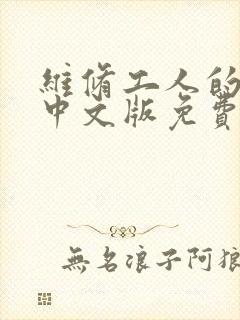 維脩工人的
中文版免費
無名浪子阿狼